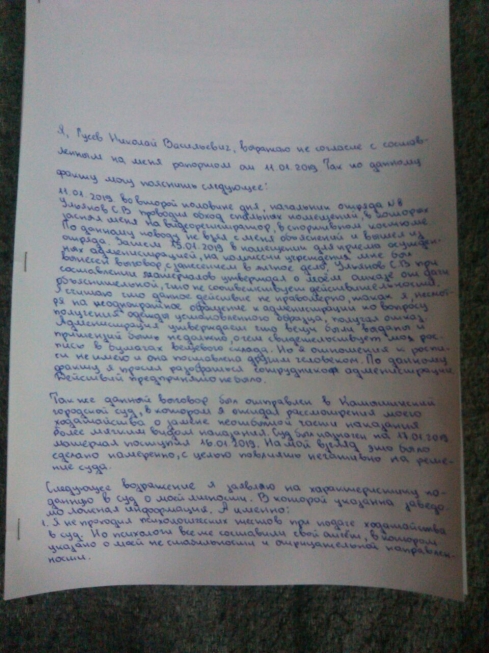 Я, Гусев Николай Васильевич, выражаю не согласие с состав-
ленным на меня рапортом от 11.01.2019 Так по данному
факту могу пояснить следующее:
11.01.2019 во второй половине дня, начальник отряда №8
Ульянов С.В. проводил обход спальных помещений, в котором
заснял меня на видеорегистратор, в спортивном костюме
По данному поводу не взяв с меня объяснений и вышел из
отряда. Затем 15.01.2019 в помещении для приема осужден-
ных администрацией, на комиссии учреждения мне был
вынесен выговор с занесением в личное дело. Ульянов С.В при
составлении материалов утверждал о моем отказе от дачи
объяснительной, что не соответствует действительности.
Я считаю что данное действие не правомерно, так как я несмот-
ря на неоднократное обращение к администрации по вопросу
получения одежды установленного образца, получал отказ.
Администрация утверждает что вещи были выданы и
претензий быть не должно, о чем свидетельствует моя рос-
пись в бумагах вещевого склада. Но я отношения к роспи-
си не имею и она поставлена другим человеком. По данному
факту я просил разобраться сотрудников администрации
Действий предпринято не было.
Так же данный выговор был отправлен в
городской суд, в котором я ожидал рассмотрения моего
ходатайства о замене неотбытой части наказания
более мягким видом наказания. Суд был назначен на 17.01.2019
материал поступил 16.01.2019. На мой взгляд это было
сделано намеренно, с целью повлиять негативно на реше-
ние суда.
Следующее возражение я заявляю на характеристику по-
данную в суд о моей личности. В которой указанна заведо-
мо ложная информация. А именно:
1. Я не проходил психологических тестов при подаче ходатайства
в суд. Но психологи все же составили свой ответ, в котором
указано о моей не стабильности и отрицательной направлен-
ности.